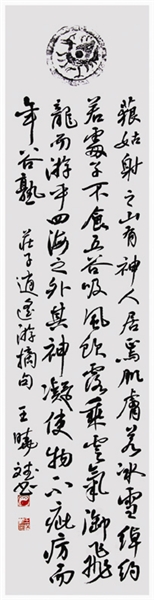 藐姑射之山有神人居焉肌膚若冰雪綽約
若處子不食五谷吸風飲露乘雲氣御飛
龍而游乎四海之外其神凝使物不疵疠而
年谷熟 莊子逍遙游摘句 王曉